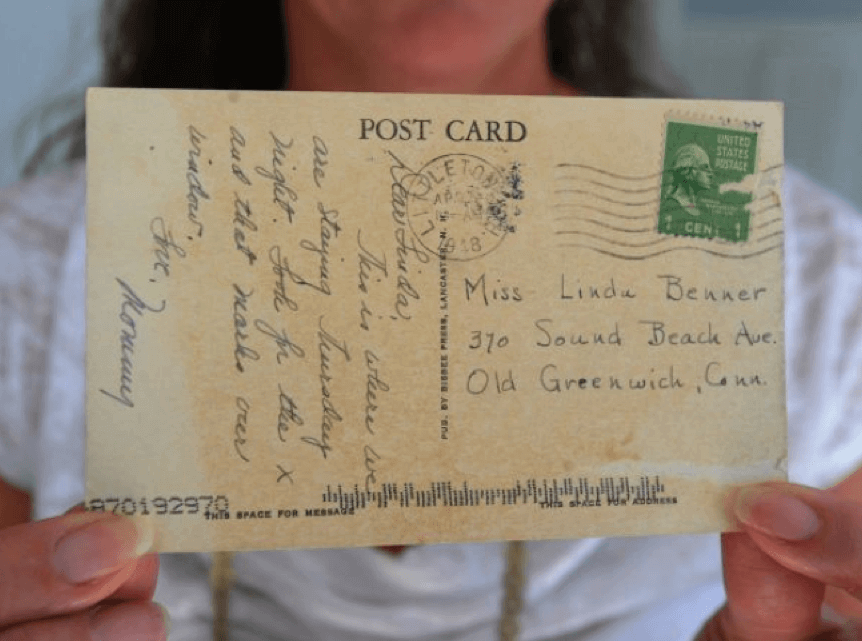 POST CARD
UNITED
STATES
POSTAGE
1 CENT 1
LITTLETON
APR
1948
Dear Linda,
This is where we
are staying Thursday
night. Look for the x
and that marks over
window.
Love,
Mommy
PUB. BY BISBEE PRESS, LANCASTER, N. H.
Miss Linda Benner
370 Sound Beach Ave.
Old Greenwich, Conn.
970192970
THIS SPACE FOR MESSAGE
THIS SPACE FOR ADDRESS